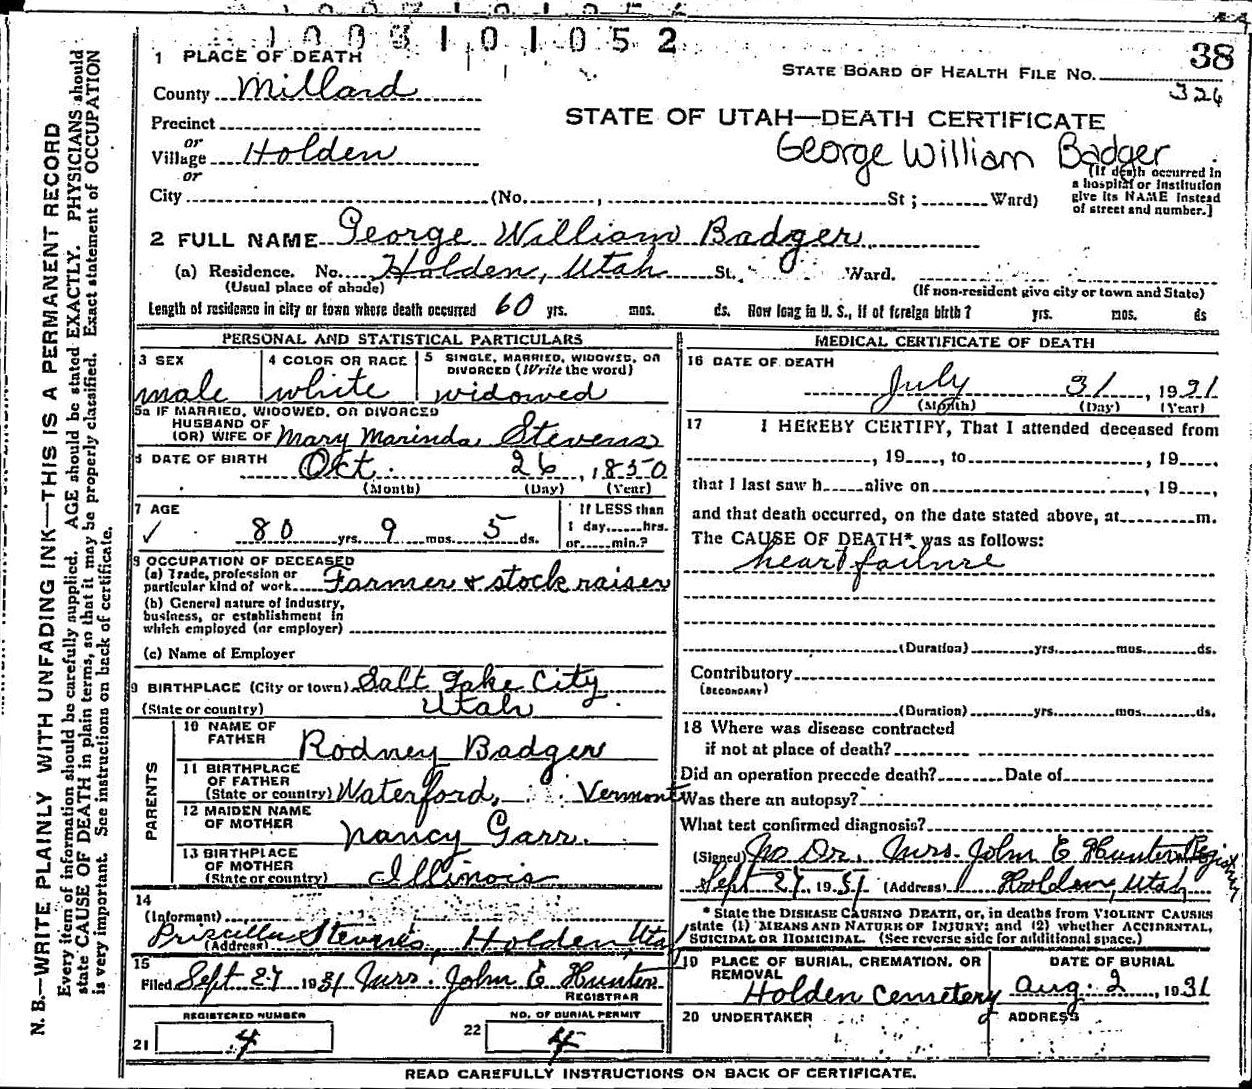 1003101052
38
1 PLACE OF DEATH
STATE BOARD OF HEALTH FILE NO.
326
County Millard
STATE OF UTAH—DEATH CERTIFICATE
Precinct
or
George William Badger
Village Holden
or
(If death occurred in a hospital or institution give its NAME instead of street and number.]
City (No. , St ; Ward)
2 FULL NAME George William Badger
(a) Residence. No. Holden, Utah St. Ward.
(Usual place of abode) (If non-resident give city or town and State)
Length of residence in city or town where death occurred 60 yrs. mos. ds. How long in U. S., if of foreign birth? yrs. mos. ds
PERSONAL AND STATISTICAL PARTICULARS
3 SEX
male
4 COLOR OR RACE
white
5 SINGLE, MARRIED, WIDOWED, OR
DIVORCED (Write the word)
widowed
5a IF MARRIED, WIDOWED, OR DIVORCED
HUSBAND OF
(OR) WIFE OF Mary Marinda Stevens
6 DATE OF BIRTH Oct. 26, 1850
(Month) (Day) (Year)
7 AGE
80 yrs. 9 mos. 5 ds.
If LESS than
1 day, hrs.
or min.?
8 OCCUPATION OF DECEASED
(a) Trade, profession or
particular kind of work Farmer & stock raiser
(b) General nature of industry,
business, or establishment in
which employed (or employer)
(c) Name of Employer
9 BIRTHPLACE (City or town) Salt Lake City
(State or country) Utah
PARENTS
10 NAME OF
FATHER Rodney Badger
11 BIRTHPLACE
OF FATHER
(State or country) Waterford, Vermont
12 MAIDEN NAME
OF MOTHER Nancy Garr.
13 BIRTHPLACE
OF MOTHER
(State or country) Illinois
14
(Informant)
Priscilla Stevens, Holden, Uta
(Address)
15
Filed Sept 27 1931 Mrs. John E Hunter
REGISTRAR
REGISTERED NUMBER
21 4
NO. OF BURIAL PERMIT
22 4
MEDICAL CERTIFICATE OF DEATH
16 DATE OF DEATH
July 31, 1931
(Month) (Day) (Year)
17 I HEREBY CERTIFY, That I attended deceased from
, 19 , to , 19 ,
that I last saw h alive on , 19 ,
and that death occurred, on the date stated above, at m.
The CAUSE OF DEATH* was as follows:
heart failure
(Duration) yrs. mos. ds.
Contributory
(SECONDARY)
(Duration) yrs. mos. ds.
18 Where was disease contracted
if not at place of death?
Did an operation precede death? Date of
Was there an autopsy?
What test confirmed diagnosis?
(Signed) No Dr. Mrs. John E Hunter Registrar
Sept 27, 1931 (Address) Holden, Utah
* State the DISEASE CAUSING DEATH, or, in deaths from VIOLENT CAUSES
state (1) MEANS AND NATURE OF INJURY; and (2) whether ACCIDENTAL,
SUICIDAL OR HOMICIDAL. (See reverse side for additional space.)
19 PLACE OF BURIAL, CREMATION, OR
REMOVAL
Holden Cemetery
DATE OF BURIAL
Aug. 2, 1931
20 UNDERTAKER ADDRESS
READ CAREFULLY INSTRUCTIONS ON BACK OF CERTIFICATE.
N. B.—WRITE PLAINLY WITH UNFADING INK—THIS IS A PERMANENT RECORD
Every item of information should be carefully supplied. AGE should be stated EXACTLY. PHYSICIANS should
state CAUSE OF DEATH in plain terms, so that it may be properly classified. Exact statement of OCCUPATION
is very important. See instructions on back of certificate.